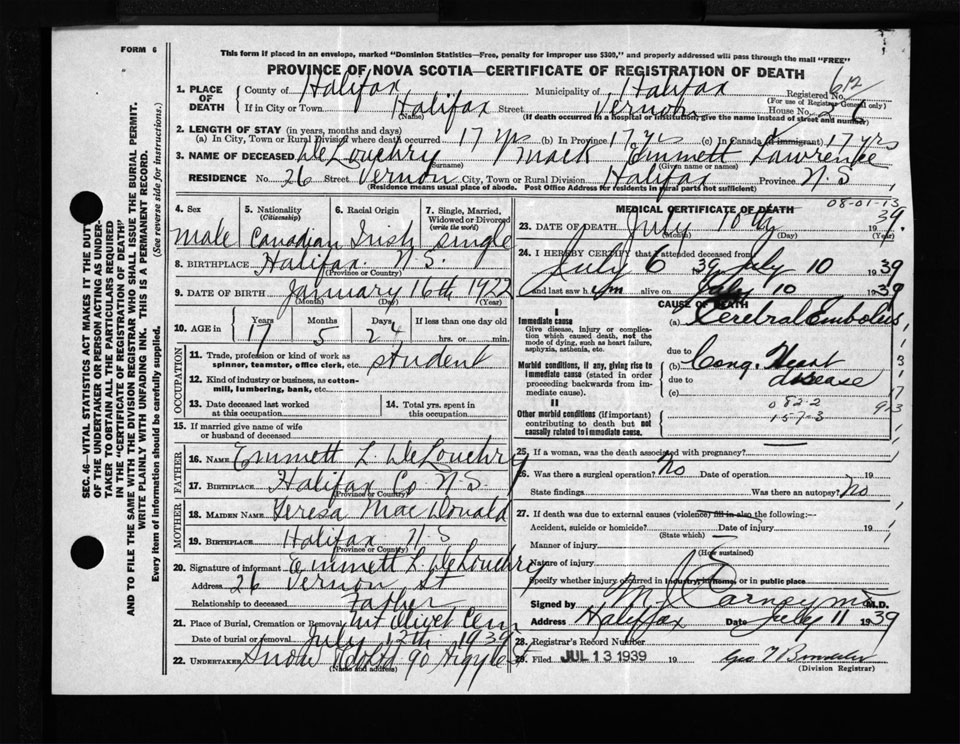 FORM 6
This form if placed in an envelope, marked "Dominion Statistics—Free, penalty for improper use $300," and properly addressed will pass through the mail "FREE"
PROVINCE OF NOVA SCOTIA—CERTIFICATE OF REGISTRATION OF DEATH
SEC. 46—VITAL STATISTICS ACT MAKES IT THE DUTY
OF THE UNDERTAKER OR PERSON ACTING AS UNDER-
TAKER TO OBTAIN ALL THE PARTICULARS REQUIRED
IN THE "CERTIFICATE OF REGISTRATION OF DEATH"
AND TO FILE THE SAME WITH THE DIVISION REGISTRAR WHO SHALL ISSUE THE BURIAL PERMIT.
WRITE PLAINLY WITH UNFADING INK. THIS IS A PERMANENT RECORD.
Every item of information should be carefully supplied. (See reverse side for instructions.)
1. PLACE OF DEATH County of Halifax Municipality of Halifax Registered No. 612
(For use of Registrar General only)
If in City or Town Halifax Street Vernon House No. 26
(Name) (If death occurred in a hospital or institution, give the name instead of street and number)
2. LENGTH OF STAY (in years, months and days)
(a) In City, Town or Rural Division where death occurred 17 yrs (b) In Province 17 yrs (c) In Canada (if immigrant) 17 yrs
3. NAME OF DECEASED DeLouchry Mack Emmett Lawrence
(Surname) (Given name or names)
RESIDENCE No. 26 Street Vernon City, Town or Rural Division Halifax Province N.S
(Residence means usual place of abode. Post Office Address for residents in rural parts not sufficient)
08-01-13
4. Sex 5. Nationality (Citizenship) 6. Racial Origin 7. Single, Married, Widowed or Divorced (write the word)
Male Canadian Irish Single
8. BIRTHPLACE Halifax N.S.
(Province or Country)
9. DATE OF BIRTH January 16th 1922
(Month) (Day) (Year)
10. AGE in Years Months Days If less than one day old
17 5 24 hrs. or min.
OCCUPATION
11. Trade, profession or kind of work as spinner, teamster, office clerk, etc. Student
12. Kind of industry or business, as cotton-mill, lumbering, bank, etc.
13. Date deceased last worked at this occupation
14. Total yrs. spent in this occupation
15. If married give name of wife or husband of deceased
FATHER
16. NAME Emmett L. DeLouchry
17. BIRTHPLACE Halifax Co N.S.
(Province or Country)
MOTHER
18. MAIDEN NAME Teresa MacDonald
19. BIRTHPLACE Halifax N.S
(Province or Country)
20. Signature of informant Emmett L. DeLouchry
Address 26 Vernon St
Relationship to deceased Father
21. Place of Burial, Cremation or Removal Mt Olivet Cem
Date of burial or removal July 12th 1939
22. UNDERTAKER Snow & Co Ltd 90 Argyle St
(Name and address)
MEDICAL CERTIFICATE OF DEATH
23. DATE OF DEATH July 10th 1939
(Month) (Day) (Year)
24. I HEREBY CERTIFY that I attended deceased from
July 6 1939 July 10 1939
and last saw him alive on July 10 1939
CAUSE OF DEATH
I
Immediate cause
Give disease, injury or complication which caused death, not the mode of dying, such as heart failure, asphyxia, asthenia, etc.
(a) Cerebral Embolus
due to
Morbid conditions, if any, giving rise to immediate cause (stated in order proceeding backwards from immediate cause).
(b) Cong. Heart disease
due to
(c)
082-2
157-3
II
Other morbid conditions (if important) contributing to death but not causally related to immediate cause.
25. If a woman, was the death associated with pregnancy?
26. Was there a surgical operation? No Date of operation 19
State findings Was there an autopsy? No
27. If death was due to external causes (violence) fill in also the following:—
Accident, suicide or homicide? Date of injury 19
(State which)
Manner of injury
(How sustained)
Nature of injury
Specify whether injury occurred in industry, in home, or in public place
Signed by M J Carney M.D.
Address Halifax Date July 11 1939
28. Registrar's Record Number
29. Filed JUL 13 1939 19
(Division Registrar)